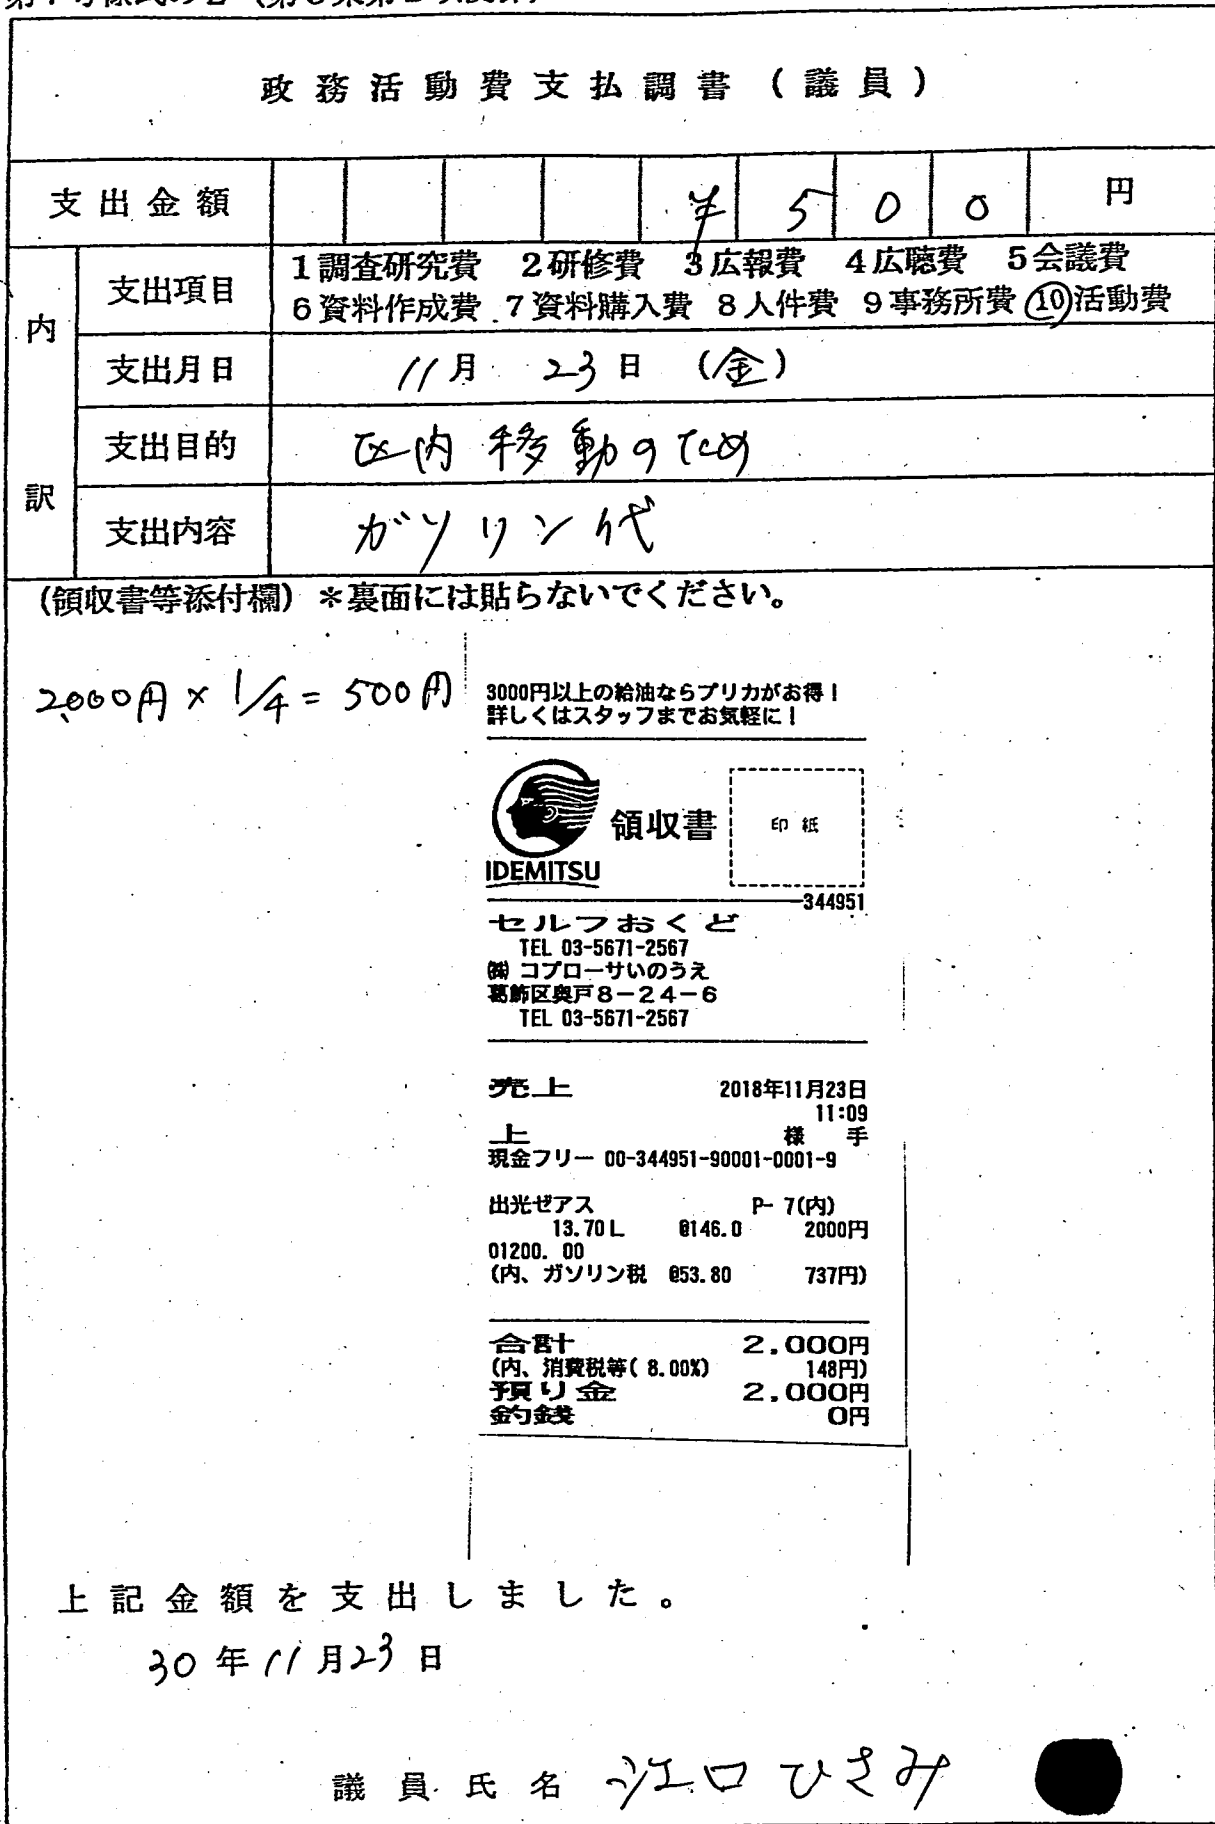 政務活動費支払調書(議員)
支出金額 ¥500円
内訳
支出項目 1調査研究費 2研修費 3広報費 4広聴費 5会議費
6資料作成費 7資料購入費 8人件費 9事務所費 ⑩活動費
支出月日 11月 23日 (金)
支出目的 区内移動のため
支出内容 ガソリン代
(領収書等添付欄)*裏面には貼らないでください。
2000円×1/4=500円
3000円以上の給油ならプリカがお得!
詳しくはスタッフまでお気軽に!
IDEMITSU 領収書 印紙
344951
セルフおくど
TEL 03-5671-2567
㈱ コプローサいのうえ
葛飾区奥戸8-24-6
TEL 03-5671-2567
売上 2018年11月23日
11:09
上 様 手
現金フリー 00-344951-90001-0001-9
出光ゼアス P- 7(内)
13.70L @146.0 2000円
01200. 00
(内、ガソリン税 @53.80 737円)
合計 2,000円
(内、消費税等( 8.00%) 148円)
預り金 2,000円
釣銭 0円
上記金額を支出しました。
30年11月23日
議員氏名 江口ひさみ